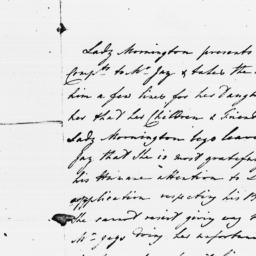 Lady Mornington presents
Compts. to Mr. Jay & takes the
him a few lines for her Daught
her that her Children & Friend
Lady Mornington begs leave
Jay that she is most gratefu
his Humane attention to
application respecting his B
She cannot resist giving way
Mr. Jays doing her